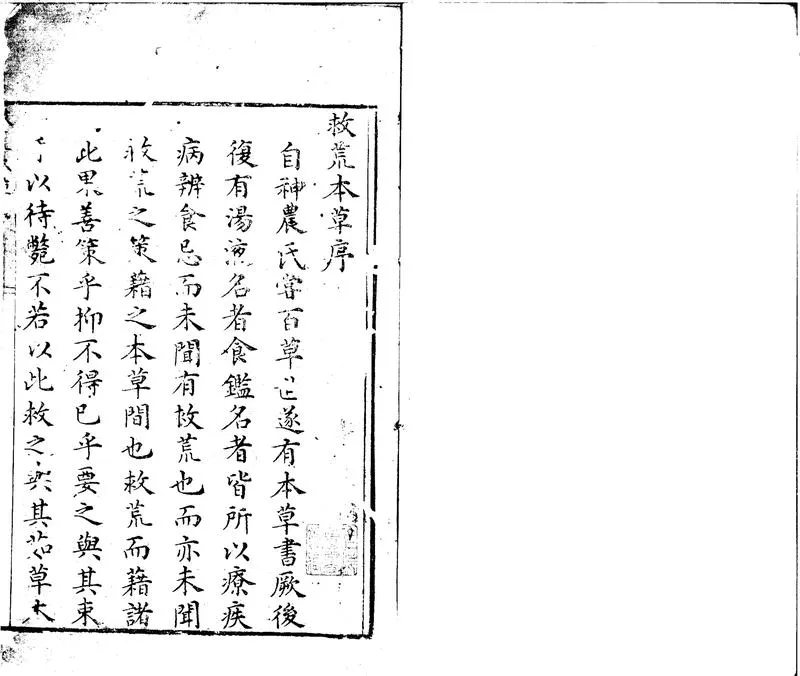 救荒本草序
自神農氏嘗百草世遂有本草書厥後
復有湯液名者食鑑名者皆所以療疾
病辨食忌而未聞有救荒也而亦未聞
救荒之策藉之本草間也救荒而藉諸
此果善策乎抑不得已乎要之與其束
手以待斃不若以此救之與其茹草木